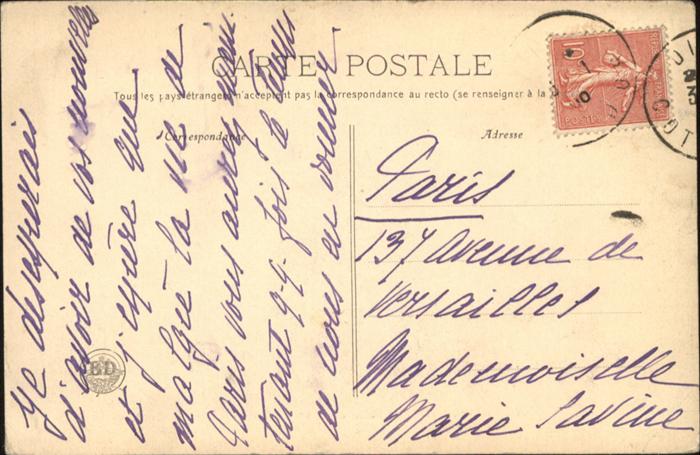 CARTE POSTALE
Tous les pays étrangers n'acceptent pas la correspondance au recto (se renseigner à la
Correspondance
Adresse
Je desesperais
d'avoir de vos nouvelles
et j'espère que
malgré la vie de
Paris vous aurez
tenant qq. fois le temps
de nous en donner
Paris
137 Avenue de
Versailles
Mademoiselle
Marie Savine
ED
10
POSTES